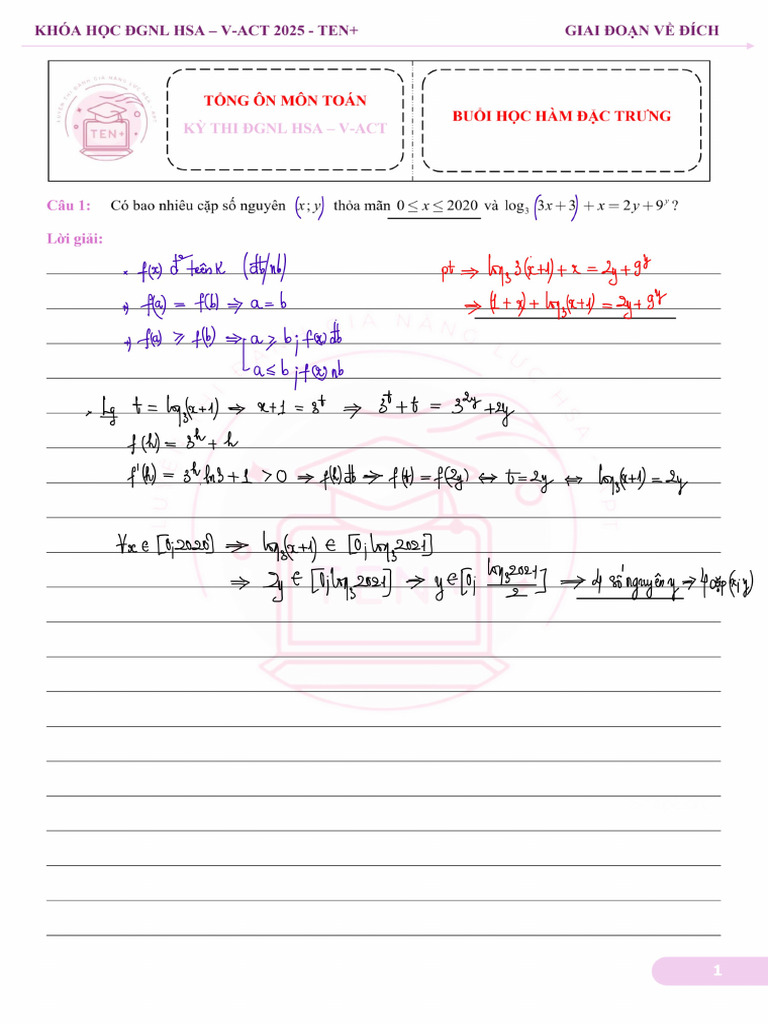 KHÓA HỌC ĐGNL HSA – V-ACT 2025 - TEN+ GIAI ĐOẠN VỀ ĐÍCH
TEN+
TỔNG ÔN MÔN TOÁN
KỲ THI ĐGNL HSA – V-ACT
BUỔI HỌC HÀM ĐẶC TRƯNG
Câu 1: Có bao nhiêu cặp số nguyên (x; y) thỏa mãn 0 ≤ x ≤ 2020 và log₃(3x+3)+x=2y+9ʸ?
Lời giải:
f(x) trên K (đb/nb) pt ⇒ log₃3(x+1)+x = 2y+9ʸ
⇒ f(a) = f(b) ⇒ a = b ⇒ (1+x)+log₃(x+1) = 2y+9ʸ
⇒ f(a) ≥ f(b) ⇒ a ≥ b; f(x) đb
a ≤ b; f(x) nb
t = log₃(x+1) ⇒ x+1 = 3ᵗ ⇒ 3ᵗ+t = 3²ʸ+2y
f(h) = 3ʰ+h
f'(h) = 3ʰln3+1 >0 ⇒ f(h) đb ⇒ f(t) = f(2y) ⇔ t=2y ⇔ log₃(x+1) = 2y
∀x ∈ [0;2020] ⇒ log₃(x+1) ∈ [0; log₃2021]
⇒ 2y ∈ [0; log₃2021] ⇒ y ∈ [0; log₃2021/2] ⇒ 4 số nguyên y ⇒ 4 cặp (x;y)
TEN+
1